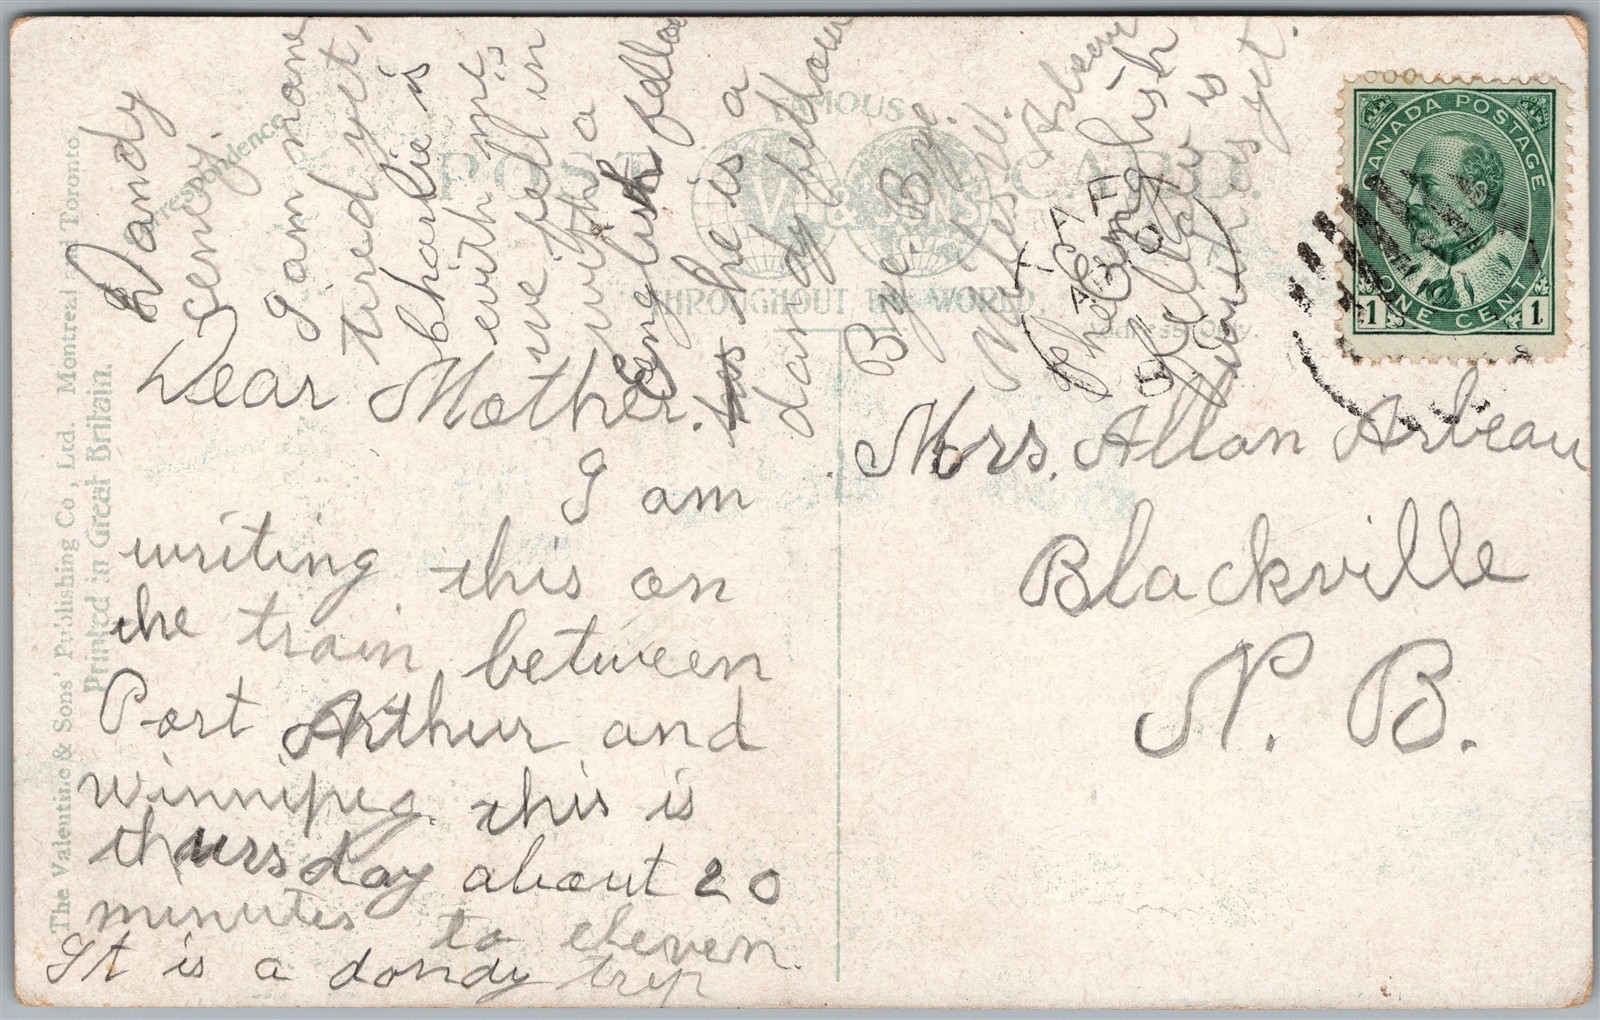 Dear Mother.
I am
writing this on
the train between
Port Arthur and
winnipeg. this is
thursday about 20
minutes to eleven.
It is a dandy trip
Dandy
cenery.
I am none
tired yet.
Charlie is
with me
we fell in
with a
English fellow
he is a
dandy fellow
Bye Bye.
Miles W. Arbeau
The English
fellow is
with us yet.
Mrs. Allan Arbeau
Blackville
N. B.
Correspondence
FAMOUS
POST CARD.
V. & SONS
THROUGHOUT THE WORLD.
Address Only.
The Valentine & Sons' Publishing Co., Ltd. Montreal and Toronto
Printed in Great Britain.
CANADA POSTAGE
1 ONE CENT 1